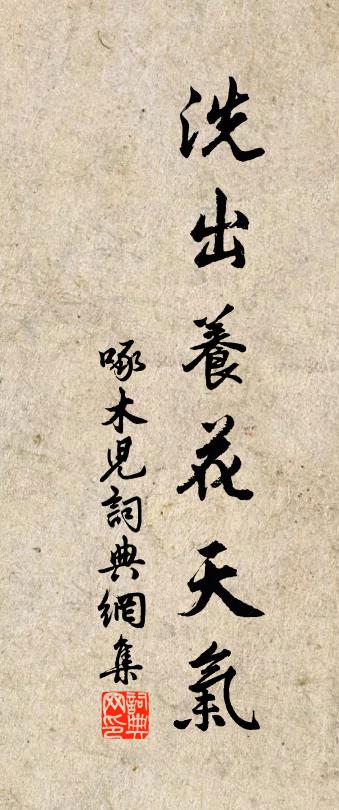 洗出養花天氣
啄木兒詞典網集
詞典網印